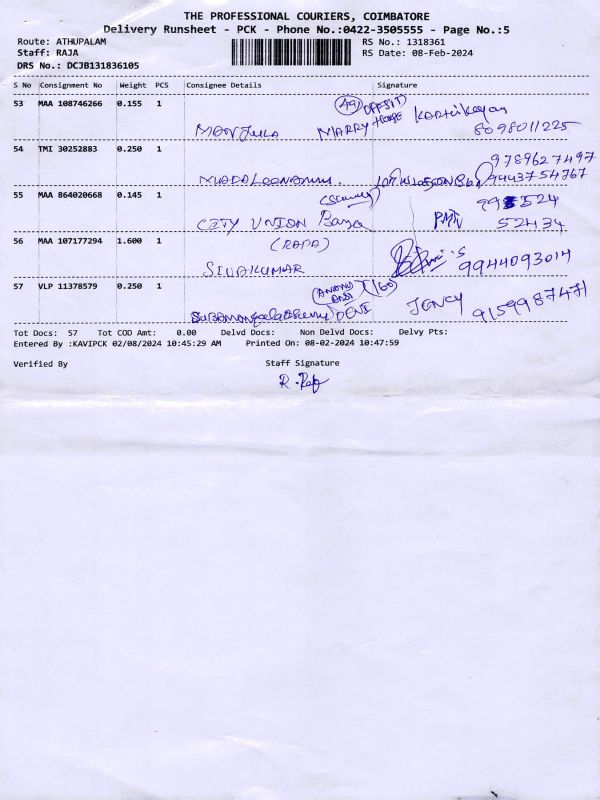 THE PROFESSIONAL COURIERS, COIMBATORE
Delivery Runsheet - PCK - Phone No.:0422-3505555 - Page No.:5
Route: ATHUPALAM RS No.: 1318361
Staff: RAJA RS Date: 08-Feb-2024
DRS No.: DCJB131836105
S No Consignment No Weight PCS Consignee Details Signature
53 MAA 108746266 0.155 1
MANJULA MARRY Karthikeyan
8098011225
54 TMI 30252883 0.250 1
9789627497
9443754767
55 MAA 864020668 0.145 1
CITY UNION 524
52434
56 MAA 107177294 1.600 1
(RAPA)
SIVAKUMAR 9944093014
57 VLP 11378579 0.250 1
(60)
DEVI JENCY 9159987471
Tot Docs: 57 Tot COD Amt: 0.00 Delvd Docs: Non Delvd Docs: Delvy Pts:
Entered By :KAVIPCK 02/08/2024 10:45:29 AM Printed On: 08-02-2024 10:47:59
Verified By Staff Signature